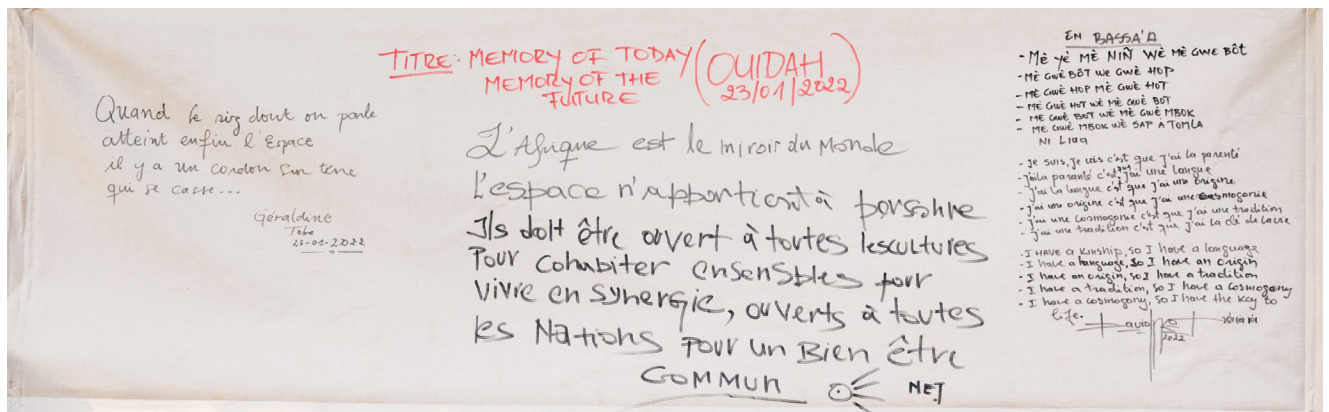 TITRE: MEMORY OF TODAY
MEMORY OF THE
FUTURE
(OUIDAH
23/01/2022)
Quand le riz dont on parle
atteint enfin l'Espace
il y a un cordon sur terre
qui se casse...
Géraldine
Tobe
23-01-2022
L'Afrique est le miroir du Monde
L'espace n'appartient à personne
Ils doit être ouvert à toutes lescultures
Pour cohabiter ensensbles pour
vivre en synergie, ouverts à toutes
les Nations Pour un Bien être
COMMUN
NET
EN BASSA'A
- Mè yè MÈ NIÑ WÈ MÈ GWE BÔT
- MÈ GWÈ BÔT WE GWÈ HOP
- MÈ GWÈ HOP MÈ GWÈ HOT
- MÈ GWÈ HOT WÈ MÈ GWÈ BOT
- ME GWÈ BOT WÈ MÈ GWÈ MBOK
- ME GWÈ MBOK WÈ SAP A TOMLA
NI LIAA
- Je suis, Je vis c'est que J'ai la parenté
- J'ai la parenté c'est que j'ai une langue
- J'ai la langue c'est que j'ai une origine
- J'ai une origine c'est que J'ai une cosmogonie
- J'ai une cosmogonie c'est que J'ai une tradition
- J'ai une tradition c'est que J'ai la clé de la vie
- I HAVE a Kinship, so I have a language
- I have a language, so I have an origin
- I have an origin, so I have a tradition
- I have a tradition, so I have a cosmogony
- I have a cosmogony, so I have the key to
life.
2022